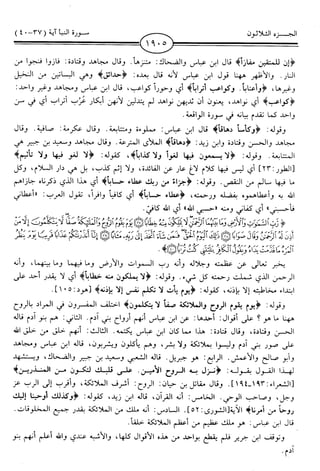 الجزء الثلاثون
سورة النبأ آية (٣٧-٤٠)
١٩٠٥
﴿إن للمتقين مفازاً﴾ قال ابن عباس والضحاك: متنزهاً. وقال مجاهد وقتادة: فازوا فنجوا من
النار. والأظهر ههنا قول ابن عباس لأنه قال بعده: ﴿حدائق﴾ وهي البساتين من النخيل
وغيرها، ﴿وأعناباً. وكواعب أتراباً﴾ أي وحوراً كواعب، قال ابن عباس ومجاهد وغير واحد:
﴿كواعب﴾ أي نواهد، يعنون أن ثديهن نواهد لم يتدلين لأنهن أبكار عرب أتراب أي في سن
واحد كما تقدم بيانه في سورة الواقعة.
وقوله: ﴿وكأساً دهاقاً﴾ قال ابن عباس: مملوءة ومتتابعة. وقال عكرمة: صافية. وقال
مجاهد والحسن وقتادة وابن زيد: ﴿دهاقاً﴾ الملأى المترعة. وقال مجاهد وسعيد بن جبير هي
المتتابعة. وقوله: ﴿لا يسمعون فيها لغواً ولا كذاباً﴾، كقوله: ﴿لا لغو فيها ولا تأثيم﴾
[الطور: ٢٣] أي ليس فيها كلام لاغ عار عن الفائدة، ولا إثم كذب، بل هي دار السلام، وكل
ما فيها سالم من النقص. وقوله: ﴿جزاءً من ربك عطاء حساباً﴾ أي هذا الذي ذكرناه جازاهم
الله به وأعطاهموه بفضله ورحمته، ﴿عطاء حساباً﴾ أي كافياً وافراً، تقول العرب: «أعطاني
فأحسبني» أي كفاني ومنه «حسبي الله» أي الله كافيّ.
يخبر تعالى عن عظمته وجلاله وأنه رب السموات والأرض وما فيهما وما بينهما، وأنه
الرحمن الذي شملت رحمته كل شيء. وقوله: ﴿لا يملكون منه خطاباً﴾ أي لا يقدر أحد على
ابتداء مخاطبته إلا بإذنه، كقوله: ﴿يوم يأت لا تكلم نفس إلا بإذنه﴾ [هود: ١٠٥].
وقوله: ﴿يوم يقوم الروح والملائكة صفاً لا يتكلمون﴾ اختلف المفسرون في المراد بالروح
ههنا ما هو؟ على أقوال: أحدها: عن ابن عباس أنهم أرواح بني آدم. الثاني: هم بنو آدم قاله
الحسن وقتادة، وقال قتادة: هذا مما كان ابن عباس يكتمه. الثالث: أنهم خلق من خلق الله
على صور بني آدم وليسوا بملائكة ولا بشر، وهم يأكلون ويشربون، قاله ابن عباس ومجاهد
وأبو صالح والأعمش. الرابع: هو جبريل. قاله الشعبي وسعيد بن جبير والضحاك، ويستشهد
لهذا القول بقوله: ﴿نزل به الروح الأمين. على قلبك لتكون من المنذرين﴾
[الشعراء: ١٩٣ـ١٩٤]. وقال مقاتل بن حيان: الروح: أشرف الملائكة، وأقرب إلى الرب عز
وجل، وصاحب الوحي. الخامس: أنه القرآن، قاله ابن زيد، كقوله: ﴿وكذلك أوحينا إليك
روحاً من أمرنا﴾ الآية [الشورى: ٥٢]. السادس: أنه ملك من الملائكة بقدر جميع المخلوقات.
قال ابن عباس: هو ملك عظيم من أعظم الملائكة خلقاً.
وتوقف ابن جرير فلم يقطع بواحد من هذه الأقوال كلها، والأشبه عندي والله أعلم أنهم بنو
آدم.